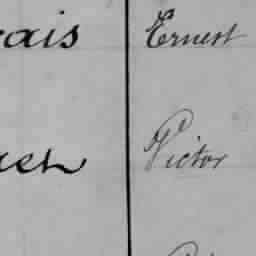 ais Ernest
et Victor